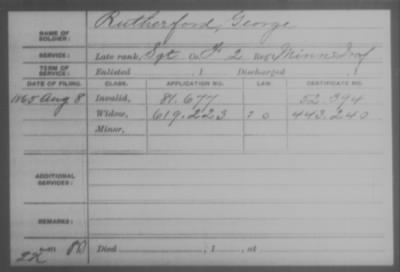 Rutherford, George
NAME OF SOLDIER:
SERVICE: Late rank, Sgt. Co. F 2 Reg't Minn Inf
TERM OF SERVICE: Enlisted , 1 Discharged
DATE OF FILING. CLASS. APPLICATION NO. LAW. CERTIFICATE NO.
1865 Aug 8 Invalid, 81.677 52.394
Widow, 619.223 443.240
Minor,
ADDITIONAL SERVICES:
REMARKS:
Died , 1 , at